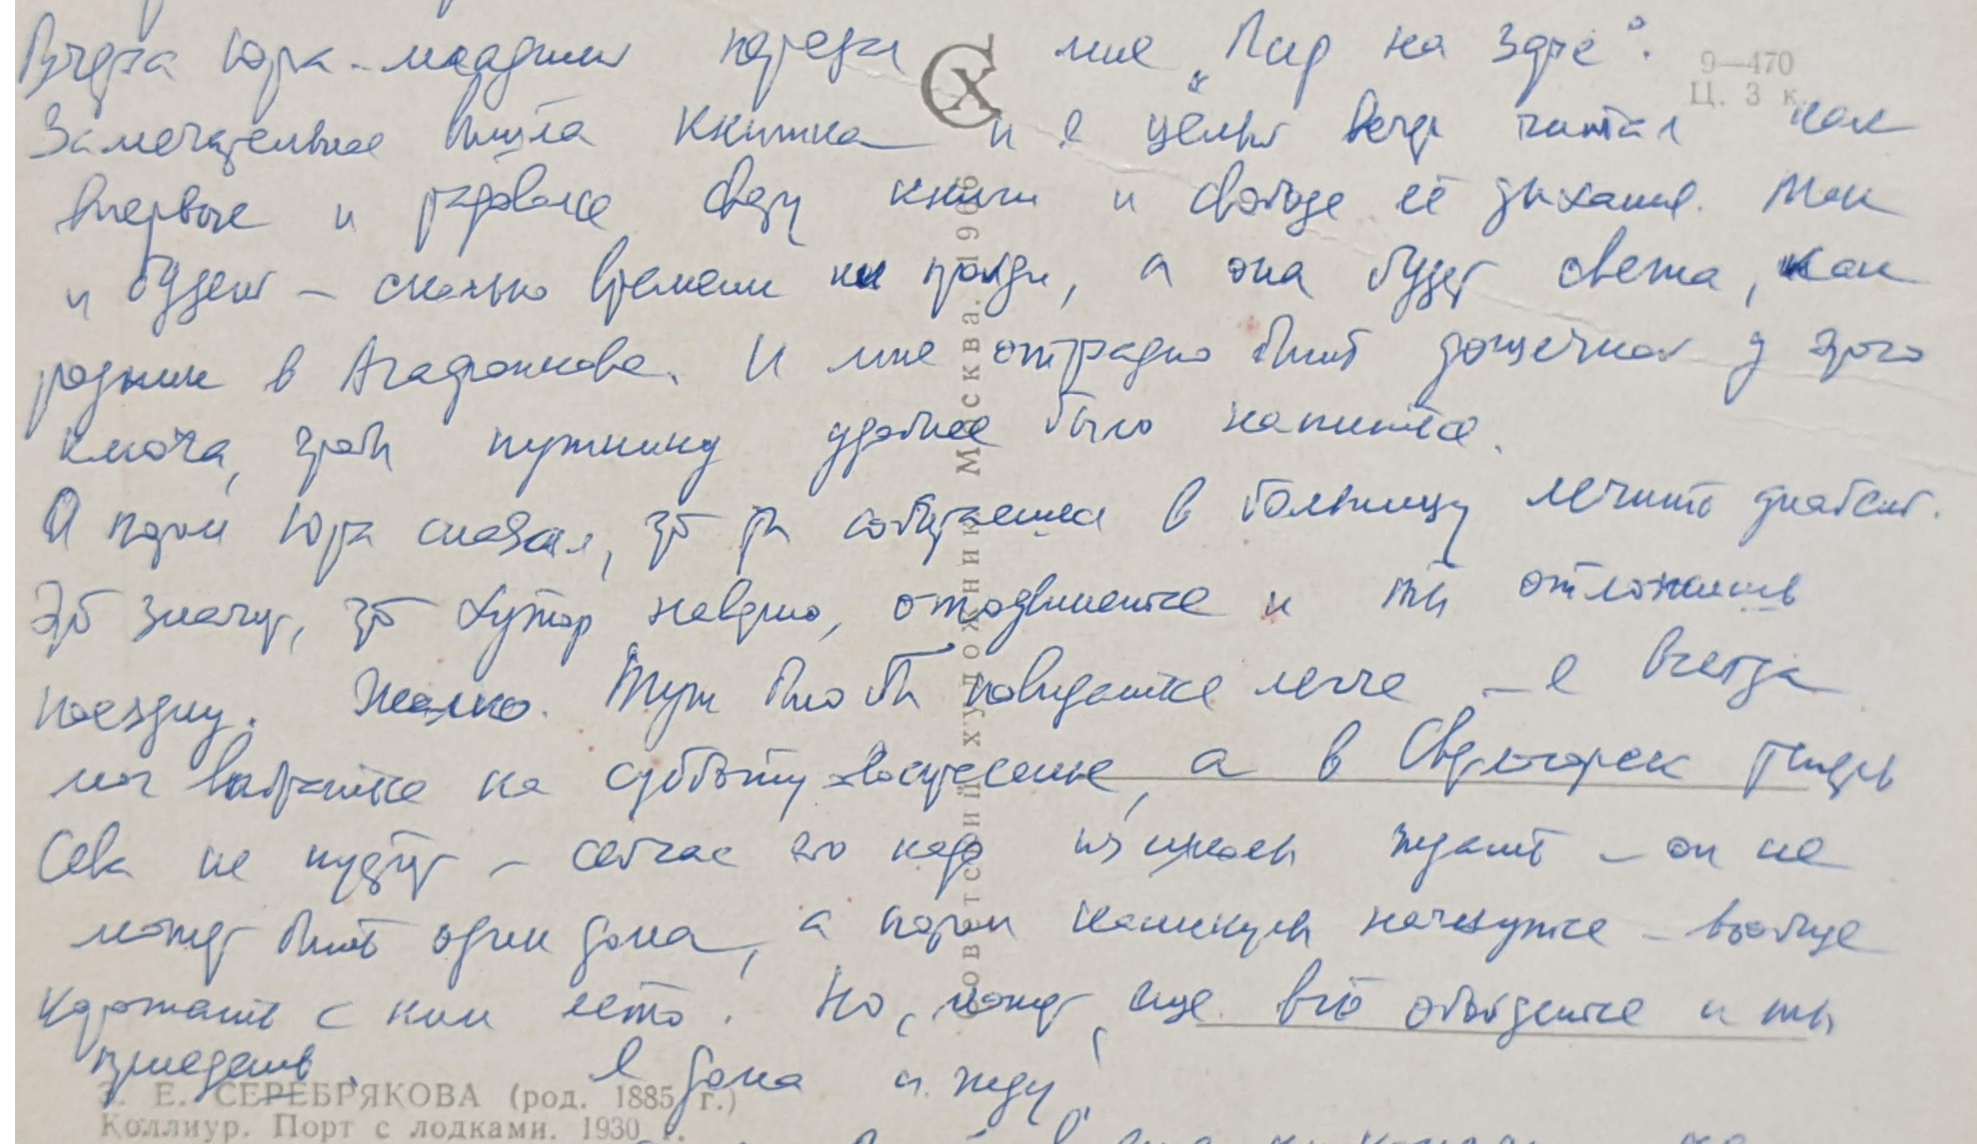 Вчера Юра-младший передал мне „Пир на заре“.
Замечательная вышла книжка и я целый вечер читал как
впервые и радовался свету книги и свободе её дыхания. Так
и будет – сколько времени ни пройди, а она будет свежа, как
родник в Агафонково. И мне отрадно быть дощечкой у этого
ключа, чтобы путнику удобнее было напиться.
А потом Юра сказал, что ты собираешься в больницу лечить диабет.
Это значит, что хутор наверно, отодвинется и ты отложишь
поездку. Жалко. Тут было бы повидаться легче – я всегда
мог вырваться на субботу-воскресенье, а в Светлогорск теперь
Сева не пустит – сейчас его надо из школы ждать – он не
может быть один дома, а потом каникулы начнутся – вообще
коротать с ним лето. Но, может, ещё всё обойдется и ты
приедешь. Я дома и жду
9—470
Ц. 3 к.
Советский художник. Москва. 1966
З. Е. СЕРЕБРЯКОВА (род. 1885 г.)
Коллиур. Порт с лодками. 1930 г.